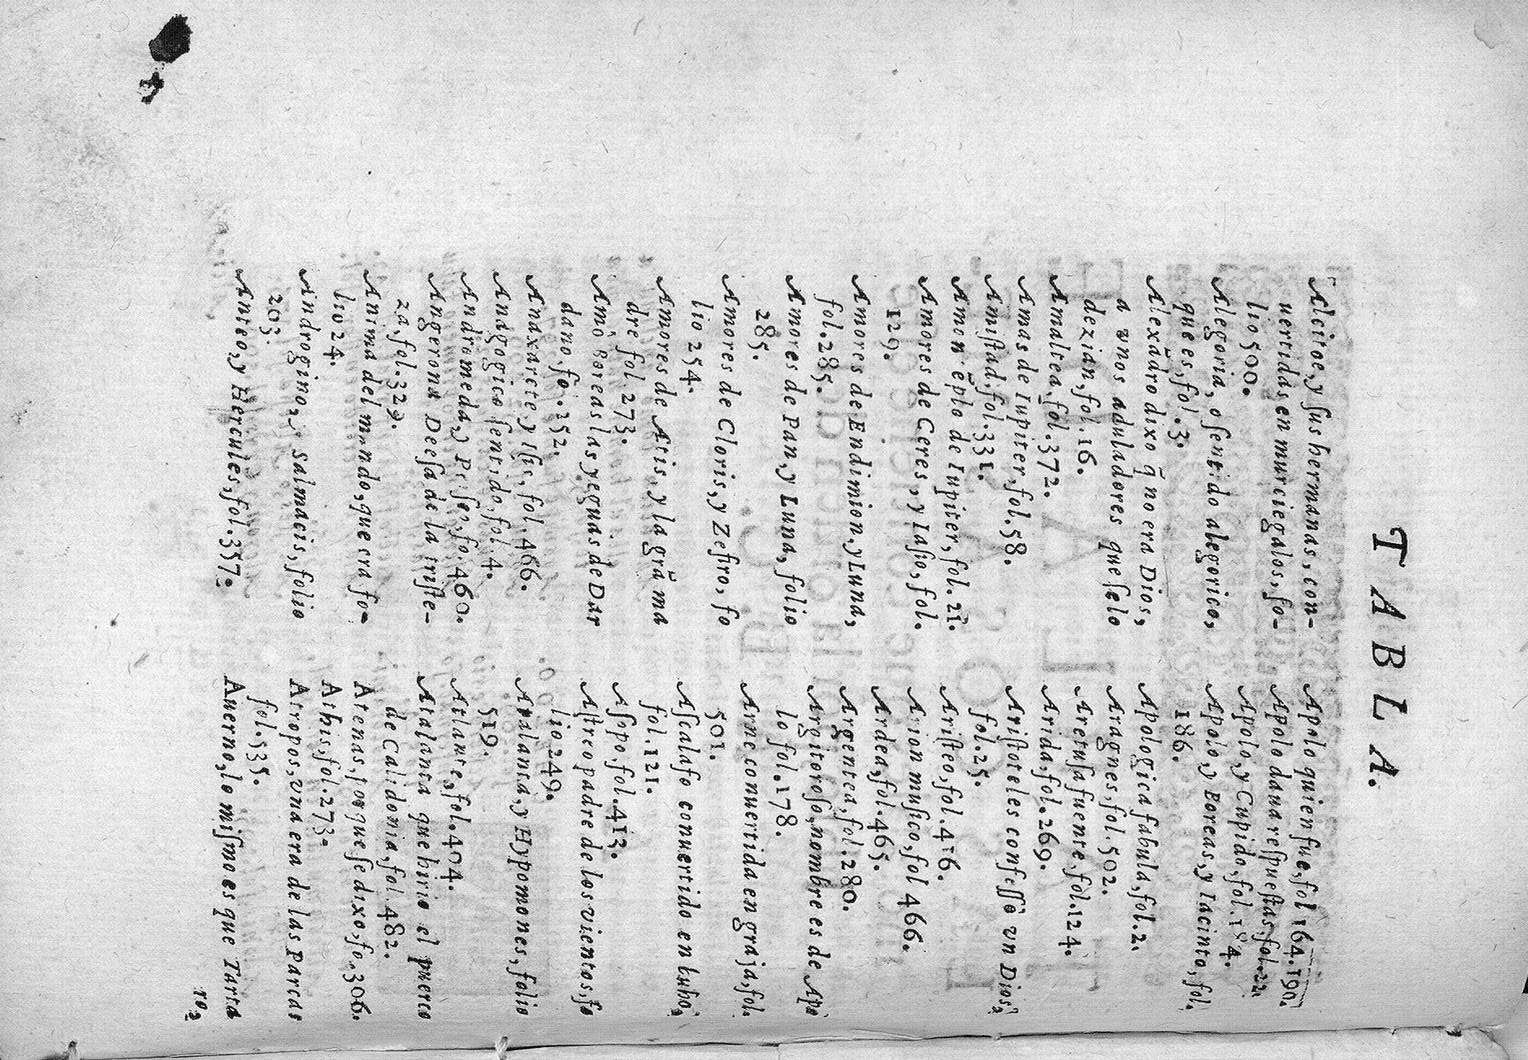 TABLA.
Alcitoe, y ſus hermanas, con-
uertidas en murciegalos, fo-
lio 500.
Alegoria, o ſentido alegorico,
que es, fol. 3.
Alexãdro dixo q̃ no era Dios,
a vnos aduladores que ſelo
dezian, fol. 16.
Amaltea, fol. 372.
Amas de Iupiter, fol. 58.
Amiſtad, fol. 331.
Amon tẽplo de Iupiter, fol. 21.
Amores de Ceres, y Iaſio, fol.
129.
Amores de Endimion, y Luna,
fol. 285.
Amores de Pan, y Luna, folio
285.
Amores de Cloris, y Zefiro, fo
lio 254.
Amores de Atis, y la grã ma
dre fol. 273.
Amò Boreas las yeguas de Dar
dano, fo. 252.
Anaxarete, y Iſis, fol. 466.
Anagogico ſentido, fol. 4.
Andromeda, y Perſeo, fo. 460.
Angerona Deeſa de la triſte-
za, fol. 329.
Anima del mundo, que era fo-
lio 24.
Androgino, y Salmacis, folio
203.
Anteo, y Hercules, fol. 357.
Apolo quien fue, fol 164. 190.
Apolo daua reſpueſtas, fol. 22.
Apolo, y Cupido, fol. 184.
Apolo, y Boreas, y Iacinto, fol.
186.
Apologica fabula, fol. 2.
Aragnes, fol. 502.
Aretuſa fuente, fol. 124.
Arida, fol. 269.
Ariſtoteles confeſſò vn Dios,
fol. 25.
Ariſteo, fol. 416.
Arion muſico, fol 466.
Ardea, fol. 465.
Argentea, fol. 280.
Argitoroſo, nombre es de Apò
lo fol. 178.
Arne conuertida en graja, fol.
501.
Aſcalafo conuertido en buho,
fol. 121.
Aſopo, fol. 413.
Aſtreo padre de los vientos, fo
lio 249.
Atalanta, y Hypomones, folio
519.
Atlante, fol. 404.
Atalanta que hirio el puerco
de Calidonia, fol. 482.
Atenas, porque ſe dixo, fo. 306.
Athis, fol. 273.
Atropos, vna era de las Parcas
fol. 535.
Auerno, lo miſmo es que Tarta
ro,